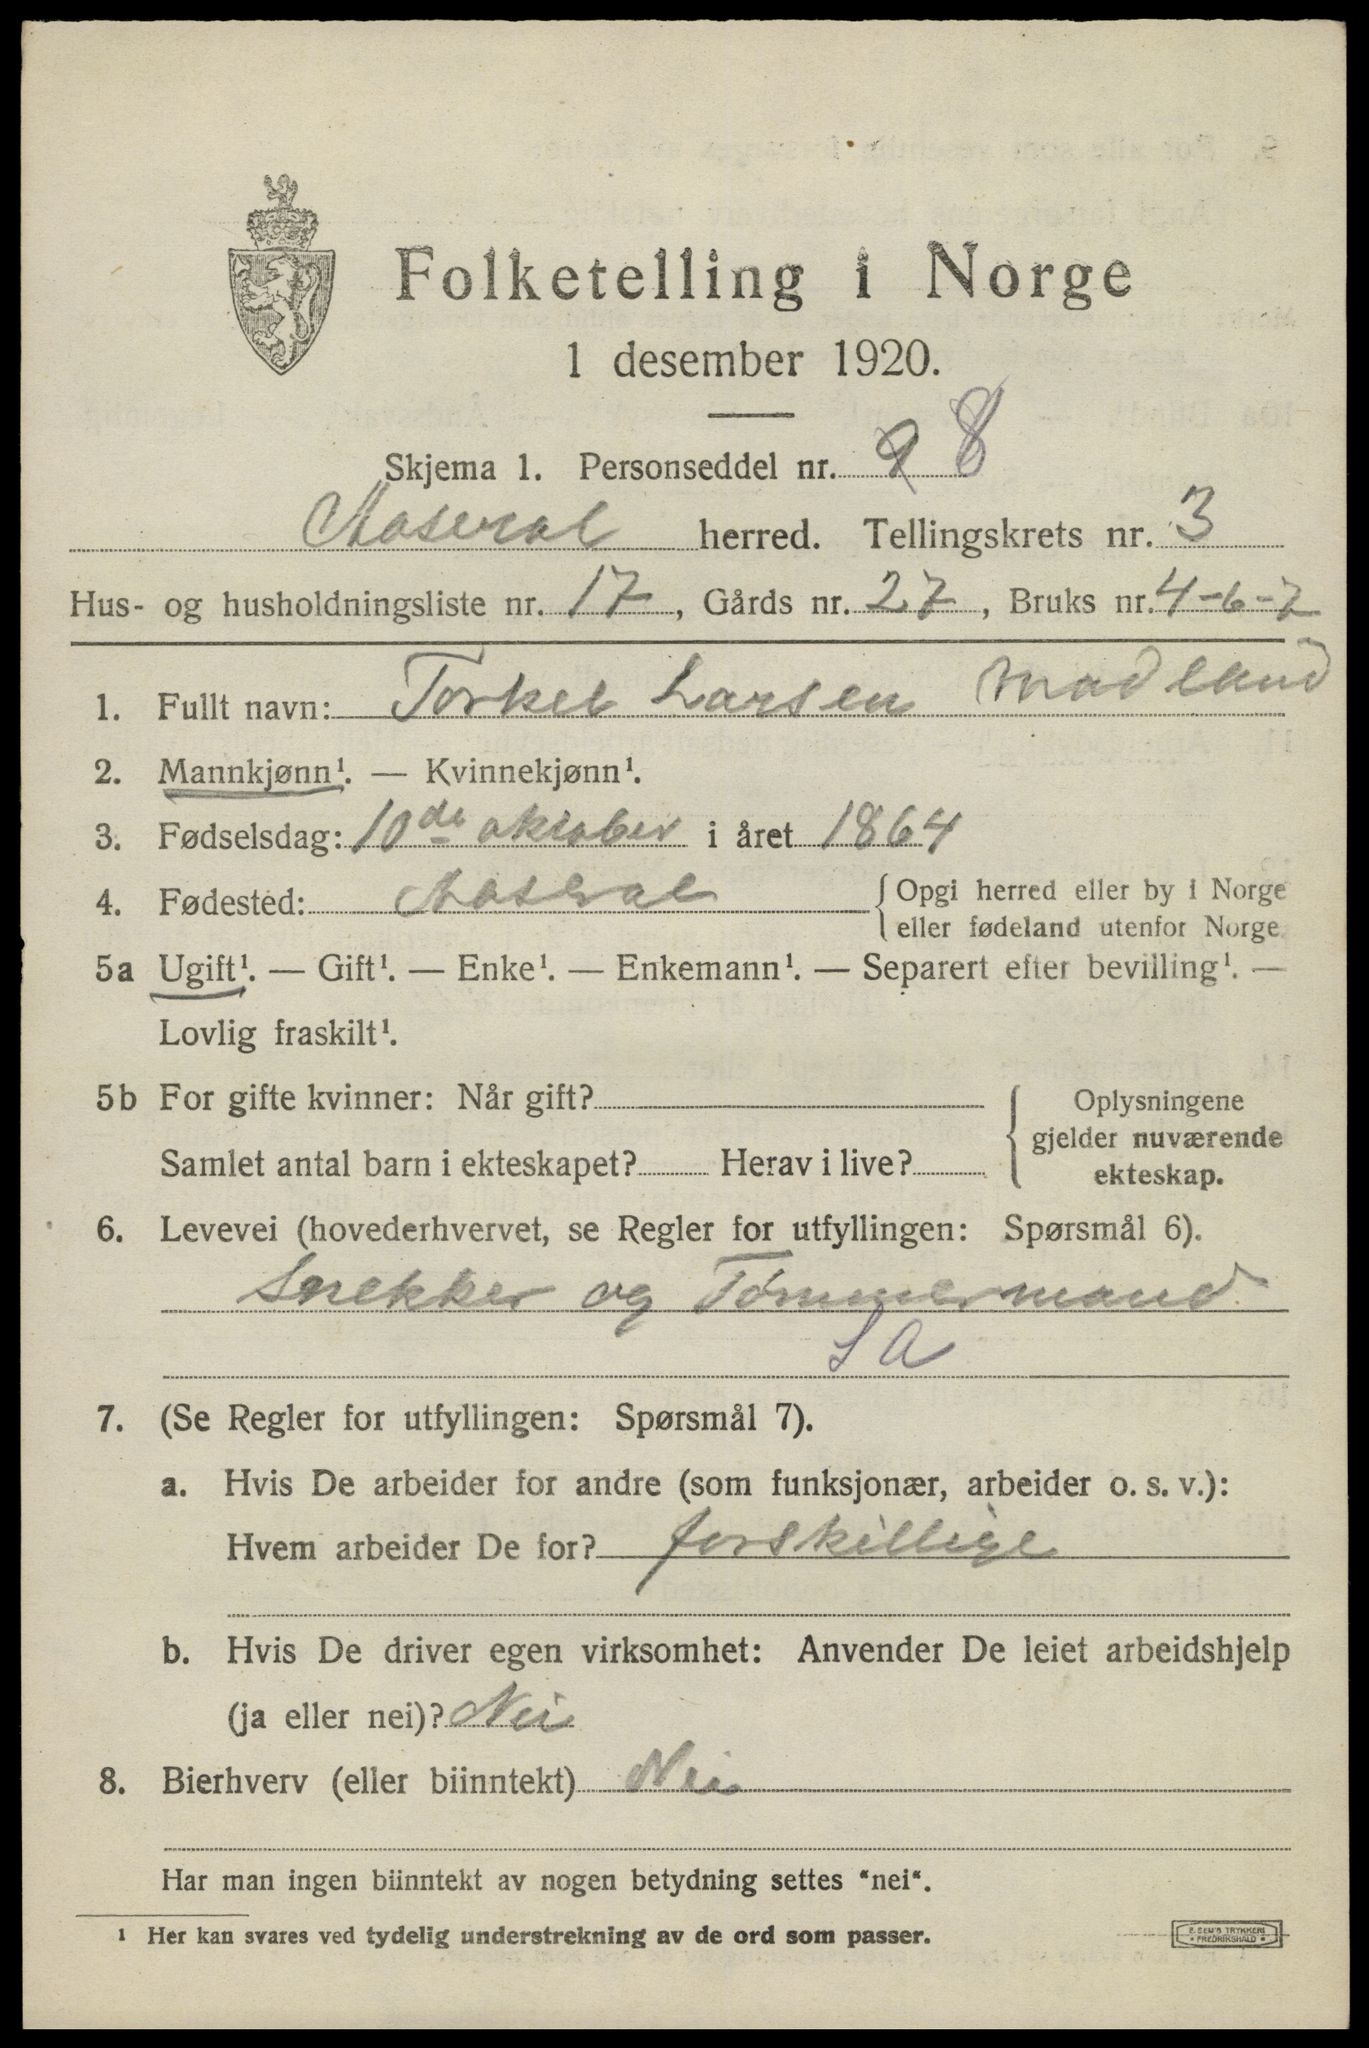 Folketelling i Norge
1 desember 1920.
Skjema 1. Personseddel nr. 9 8
Aaseral herred. Tellingskrets nr. 3
Hus- og husholdningsliste nr. 17, Gårds nr. 27, Bruks nr. 4-6-7
1. Fullt navn: Torkel Larsen Madland
2. Mannkjønn¹. — Kvinnekjønn¹.
3. Fødselsdag: 10de oktober i året 1864
4. Fødested: Aaseral {Opgi herred eller by i Norge
eller fødeland utenfor Norge.
5a Ugift¹. — Gift¹. — Enke¹. — Enkemann¹. — Separert efter bevilling¹. —
Lovlig fraskilt¹.
5b For gifte kvinner: Når gift? Oplysningene
gjelder nuværende
Samlet antal barn i ekteskapet? Herav i live? ekteskap.
6. Levevei (hovederhvervet, se Regler for utfyllingen: Spørsmål 6).
Snekker og Tømmermand
SA
7. (Se Regler for utfyllingen: Spørsmål 7).
a. Hvis De arbeider for andre (som funksjonær, arbeider o. s. v.):
Hvem arbeider De for? forskillige
b. Hvis De driver egen virksomhet: Anvender De leiet arbeidshjelp
(ja eller nei)? Nei
8. Bierhverv (eller biinntekt) Nei
Har man ingen biinntekt av nogen betydning settes "nei".
¹ Her kan svares ved tydelig understrekning av de ord som passer.
E. SEM'S TRYKKERI
FREDRIKSHALD